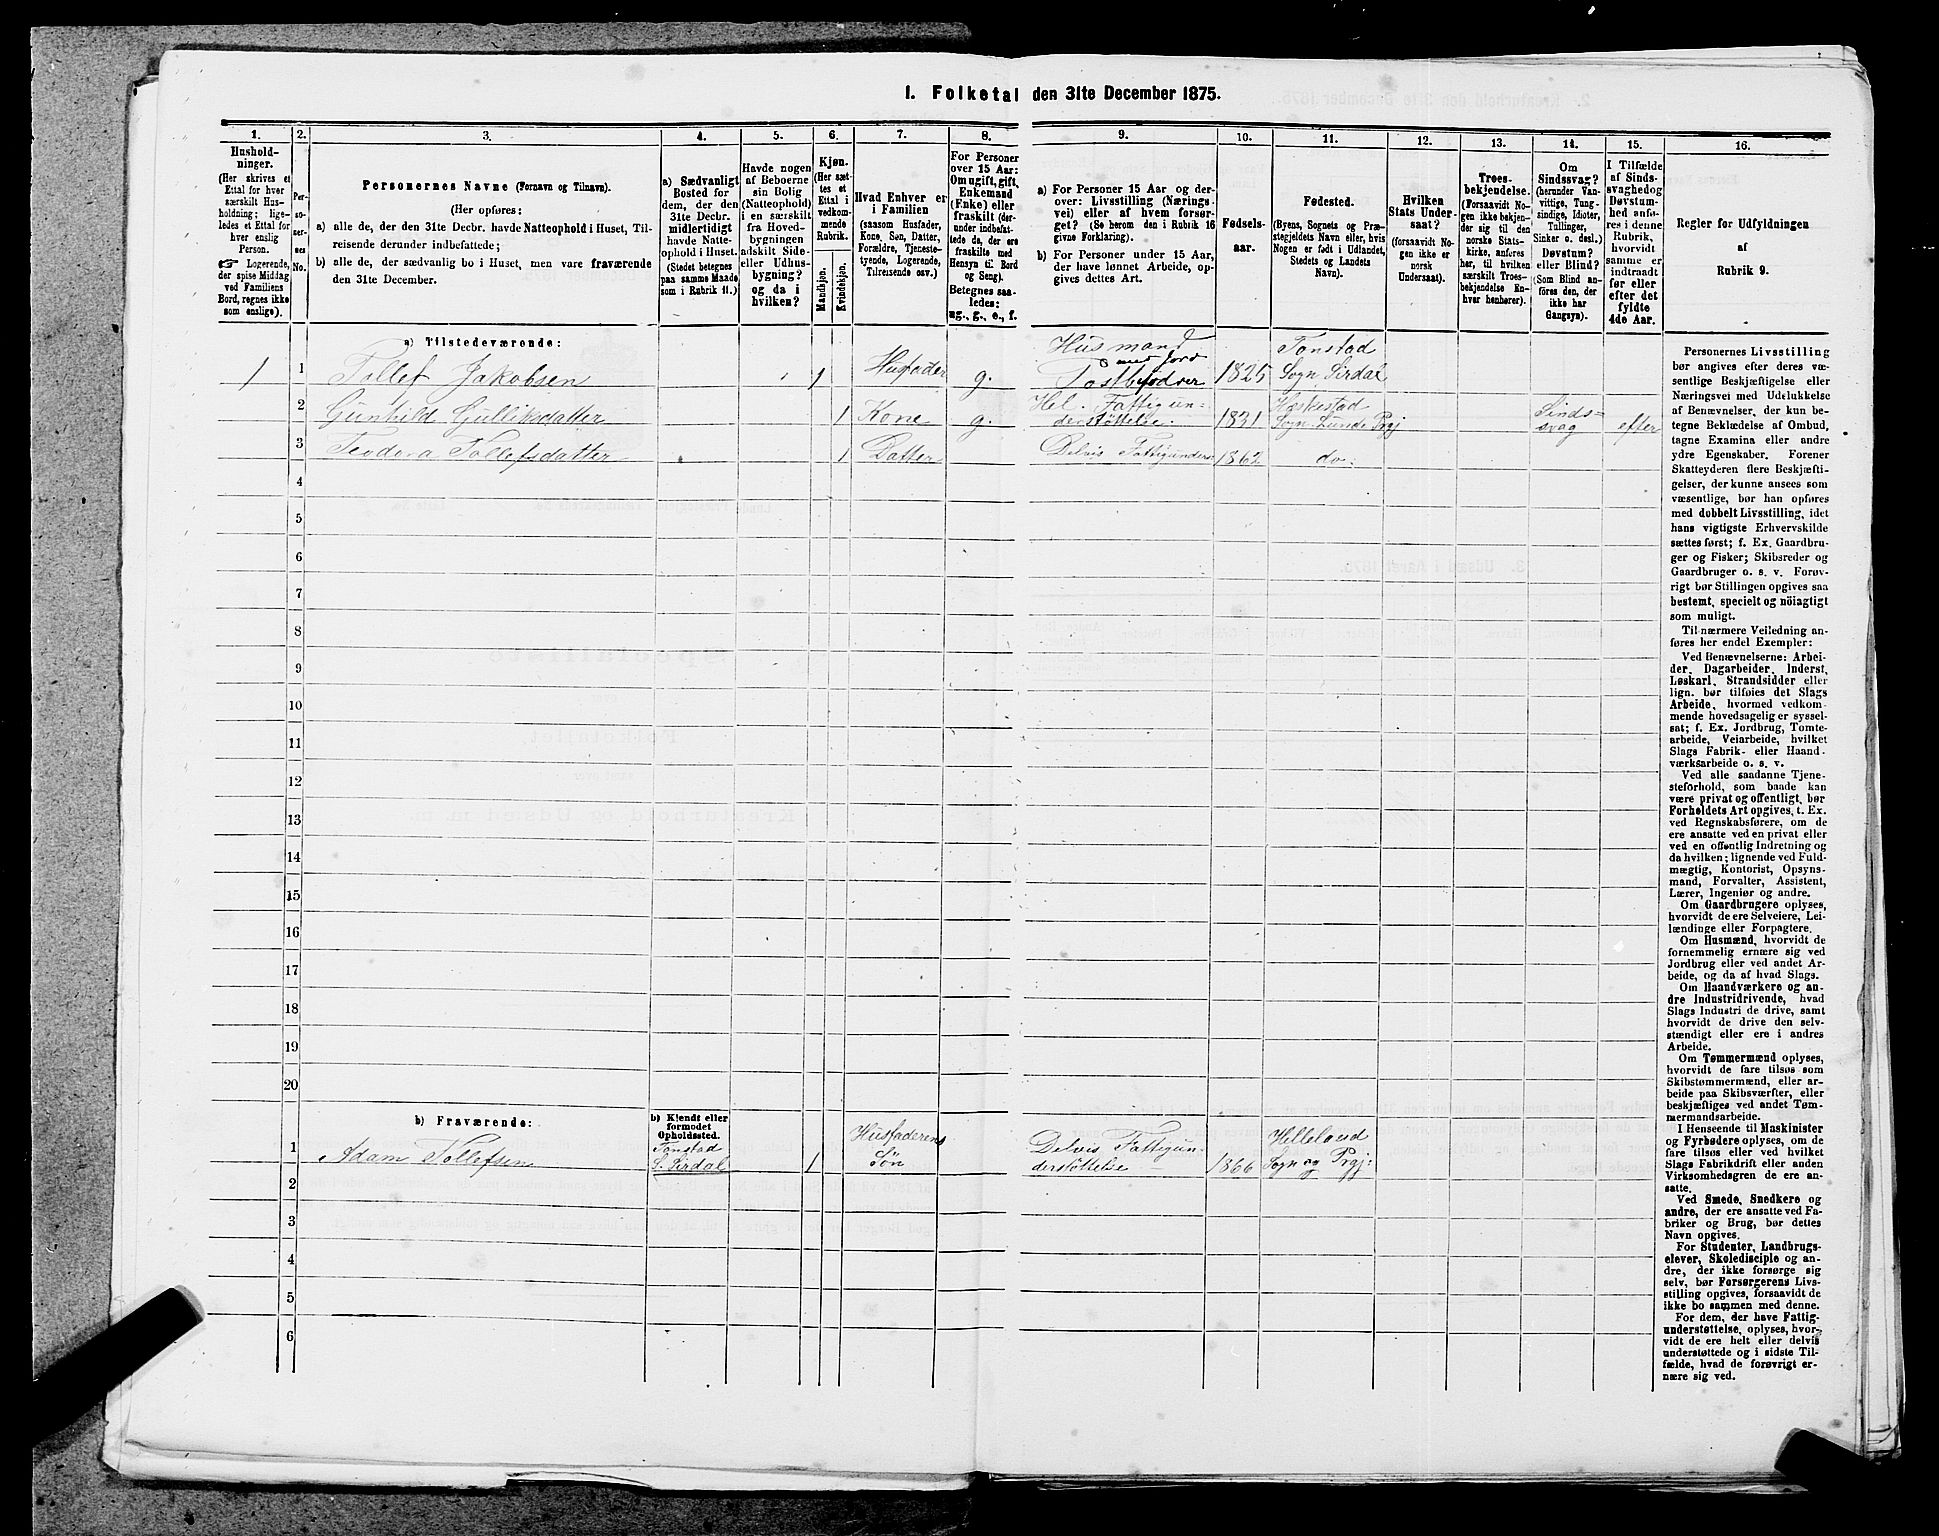 1. Folketal den 31te December 1875.
1.
2.
3.
4.
5.
6.
7.
8.
9.
10.
11.
12.
13.
14.
15.
16.
Hushold-
ninger.
(Her skrives et
Ettal for hver
særskilt Hus-
holdning; lige-
ledes et Ettal for
hver enslig
Person.
☞ Logerende,
der spise Middag
ved Familiens
Bord, regnes ikke
som enslige).
Per-
so-
ner-
nes
No.
Personernes Navne (Fornavn og Tilnavn).
(Her opføres:
a) alle de, der den 31te Decbr. havde Natteophold i Huset, Til-
reisende derunder indbefattede;
b) alle de, der sædvanlig bo i Huset, men vare fraværende
den 31te December.
a) Sædvanligt
Bosted for
dem, der den
31te Decbr.
midlertidigt
havde Natte-
ophold i Huset.
(Stedet betegnes
paa samme Maade
som i Rubrik 11.)
Havde nogen
af Beboerne
sin Bolig
(Natteophold)
i en særskilt
fra Hoved-
bygningen
adskilt Side-
eller Udhus-
bygning?
og da i
hvilken?
Kjøn.
(Her sæt-
tes et
Ettal i
vedkom-
mende
Rubrik.
Mandkjøn.
Kvindekjøn.
Hvad Enhver er
i Familien
(saasom Husfader,
Kone, Søn, Datter,
Forældre, Tjeneste-
tyende, Logerende,
Tilreisende osv.)
For Personer
over 15 Aar:
Om ugift, gift,
Enkemand
(Enke) eller
fraskilt (der-
under indbefat-
tede de, der ere
fraskilte med
Hensyn til Bord
og Seng).
Betegnes saa-
ledes:
ug., g., e., f.
a) For Personer 15 Aar og der-
over: Livsstilling (Nærings-
vei) eller af hvem forsør-
get? (Se herom den i Rubrik 16
givne Forklaring).
b) For Personer under 15 Aar,
der have lønnet Arbeide, op-
gives dettes Art.
Fødsels-
aar.
Fødested.
(Byens, Sognets og Præ-
stegjeldets Navn eller, hvis
Nogen er født i Udlandet,
Stedets og Landets
Navn).
Hvilken
Stats Under-
saat?
(forsaavidt No-
gen ikke er
norsk
Undersaat).
Troes-
bekjendelse.
(Forsaavidt No-
gen ikke bekjen-
der sig til den
norske Stats-
kirke, anføres
her, til hvilken
særskilt Troes-
bekjendelse En-
hver henhører).
Om
Sindssvag?
(herunder Van-
vittige, Tung-
sindige, Idioter,
Tullinger,
Sinker o. desl.)
Døvstum?
eller Blind?
(Som Blind an-
føres den, der
ikke har
Gangsyn).
I Tilfælde
af Sinds-
svaghedog
Døvstum-
hed anfø-
res i denne
Rubrik,
hvorvidt
samme er
indtraadt
før eller
efter det
fyldte
4de Aar.
Regler for Udfyldningen
af
Rubrik 9.
a) Tilstedeværende:
1 1 Tollef Jakobsen 1 Husfader g. Husmand med Jord Postbefodrer 1825 Tonstad Sogn Sirdal
2 Gunhild Gulliksdatter 1 Kone g. Hel. Fattigun-
derstøttelse. 1831 Heskestad Sogn Lunde Prgj Sinds=
svag efter
3 Teodora Tollefsdatter 1 Datter Delvis Fattigunders: 1862 do.
4
5
6
7
8
9
10
11
12
13
14
15
16
17
18
19
20
b) Fraværende:
b) Kjendt eller
formodet
Opholdssted.
1 Adam Tollefsen Tonstad
S. Sirdal 1 Husfaderens
Søn Delvis Fattigun-
derstøttelse 1866 Helleland
Sogn og Prgj:
2
3
4
5
6
Personernes Livsstilling
bør angives efter deres væ-
sentlige Beskjæftigelse eller
Næringsvei med Udelukkelse
af Benævnelser, der kun be-
tegne Beklædelse af Ombud,
tagne Examina eller andre
ydre Egenskaber. Forener
Skatteyderen flere Beskjæfti-
gelser, der kunne ansees som
væsentlige, bør han opføres
med dobbelt Livsstilling, idet
hans vigtigste Erhvervskilde
sættes først; f. Ex. Gaardbru-
ger og Fisker; Skibsreder og
Gaardbruger o. s. v. Forøv-
rigt bør Stillingen opgives saa
bestemt, specielt og nöiagtigt
som muligt.
Til nærmere Veiledning an-
føres her endel Exempler:
Ved Benævnelserne: Arbei-
der, Dagarbeider, Inderst,
Løskarl, Strandsidder eller
lign. bør tilføies det Slags
Arbeide, hvormed vedkom-
mende hovedsagelig er syssel-
sat; f. Ex. Jordbrug, Tomte-
arbeide, Veiarbeide, hvilket
Slags Fabrik- eller Haand-
værksarbeide o. s. v.
Ved alle saadanne Tjene-
steforhold, som baade kan
være privat og offentligt, bør
Forholdets Art opgives, t. Ex.
ved Regnskabsførere, om de
ere ansatte ved en privat eller
ved en offentlig Indretning og
da hvilken; lignende ved Fuld-
mægtig, Kontorist, Opsyns-
mand, Forvalter, Assistent,
Lærer, Ingeniør og andre.
Om Gaardbrugere oplyses,
hvorvidt de ere Selveiere, Lei-
lændinge eller Forpagtere.
Om Husmænd, hvorvidt de
fornemmelig ernære sig ved
Jordbrug eller ved andet Ar-
beide, og da af hvad Slags.
Om Haandværkere og an-
dre Industridrivende, hvad
Slags Industri de drive, samt
hvorvidt de drive den selv-
stændigt eller ere i andres
Arbeide.
Om Tømmermænd oplyses,
hvorvidt de fare tilsøs som
Skibstømmermænd, eller ar-
beide paa Skibsværfter, eller
beskjæftiges ved andet Tøm-
mermandsarbeide.
I Henseende til Maskinister
og Fyrbødere oplyses, om de
fare tilsøs eller ved hvilket
Slags Fabrikdrift eller anden
Virksomhedsgren de ere an-
satte.
Ved Smede, Snedkere og
andre, der ere ansatte ved Fa-
briker og Brug, bør dettes
Navn opgives.
For Studenter, Landbrugs-
elever, Skoledisciple og an-
dre, der ikke forsørge sig
selv, bør Forsørgerens Livs-
stilling opgives, forsaavidt de
ikke bo sammen med denne.
For dem, der have Fattig-
understøttelse, oplyses, hvor-
vidt de ere helt eller delvis
understøttede og i sidste Til-
fælde, hvad de forøvrigt er-
nære sig ved.